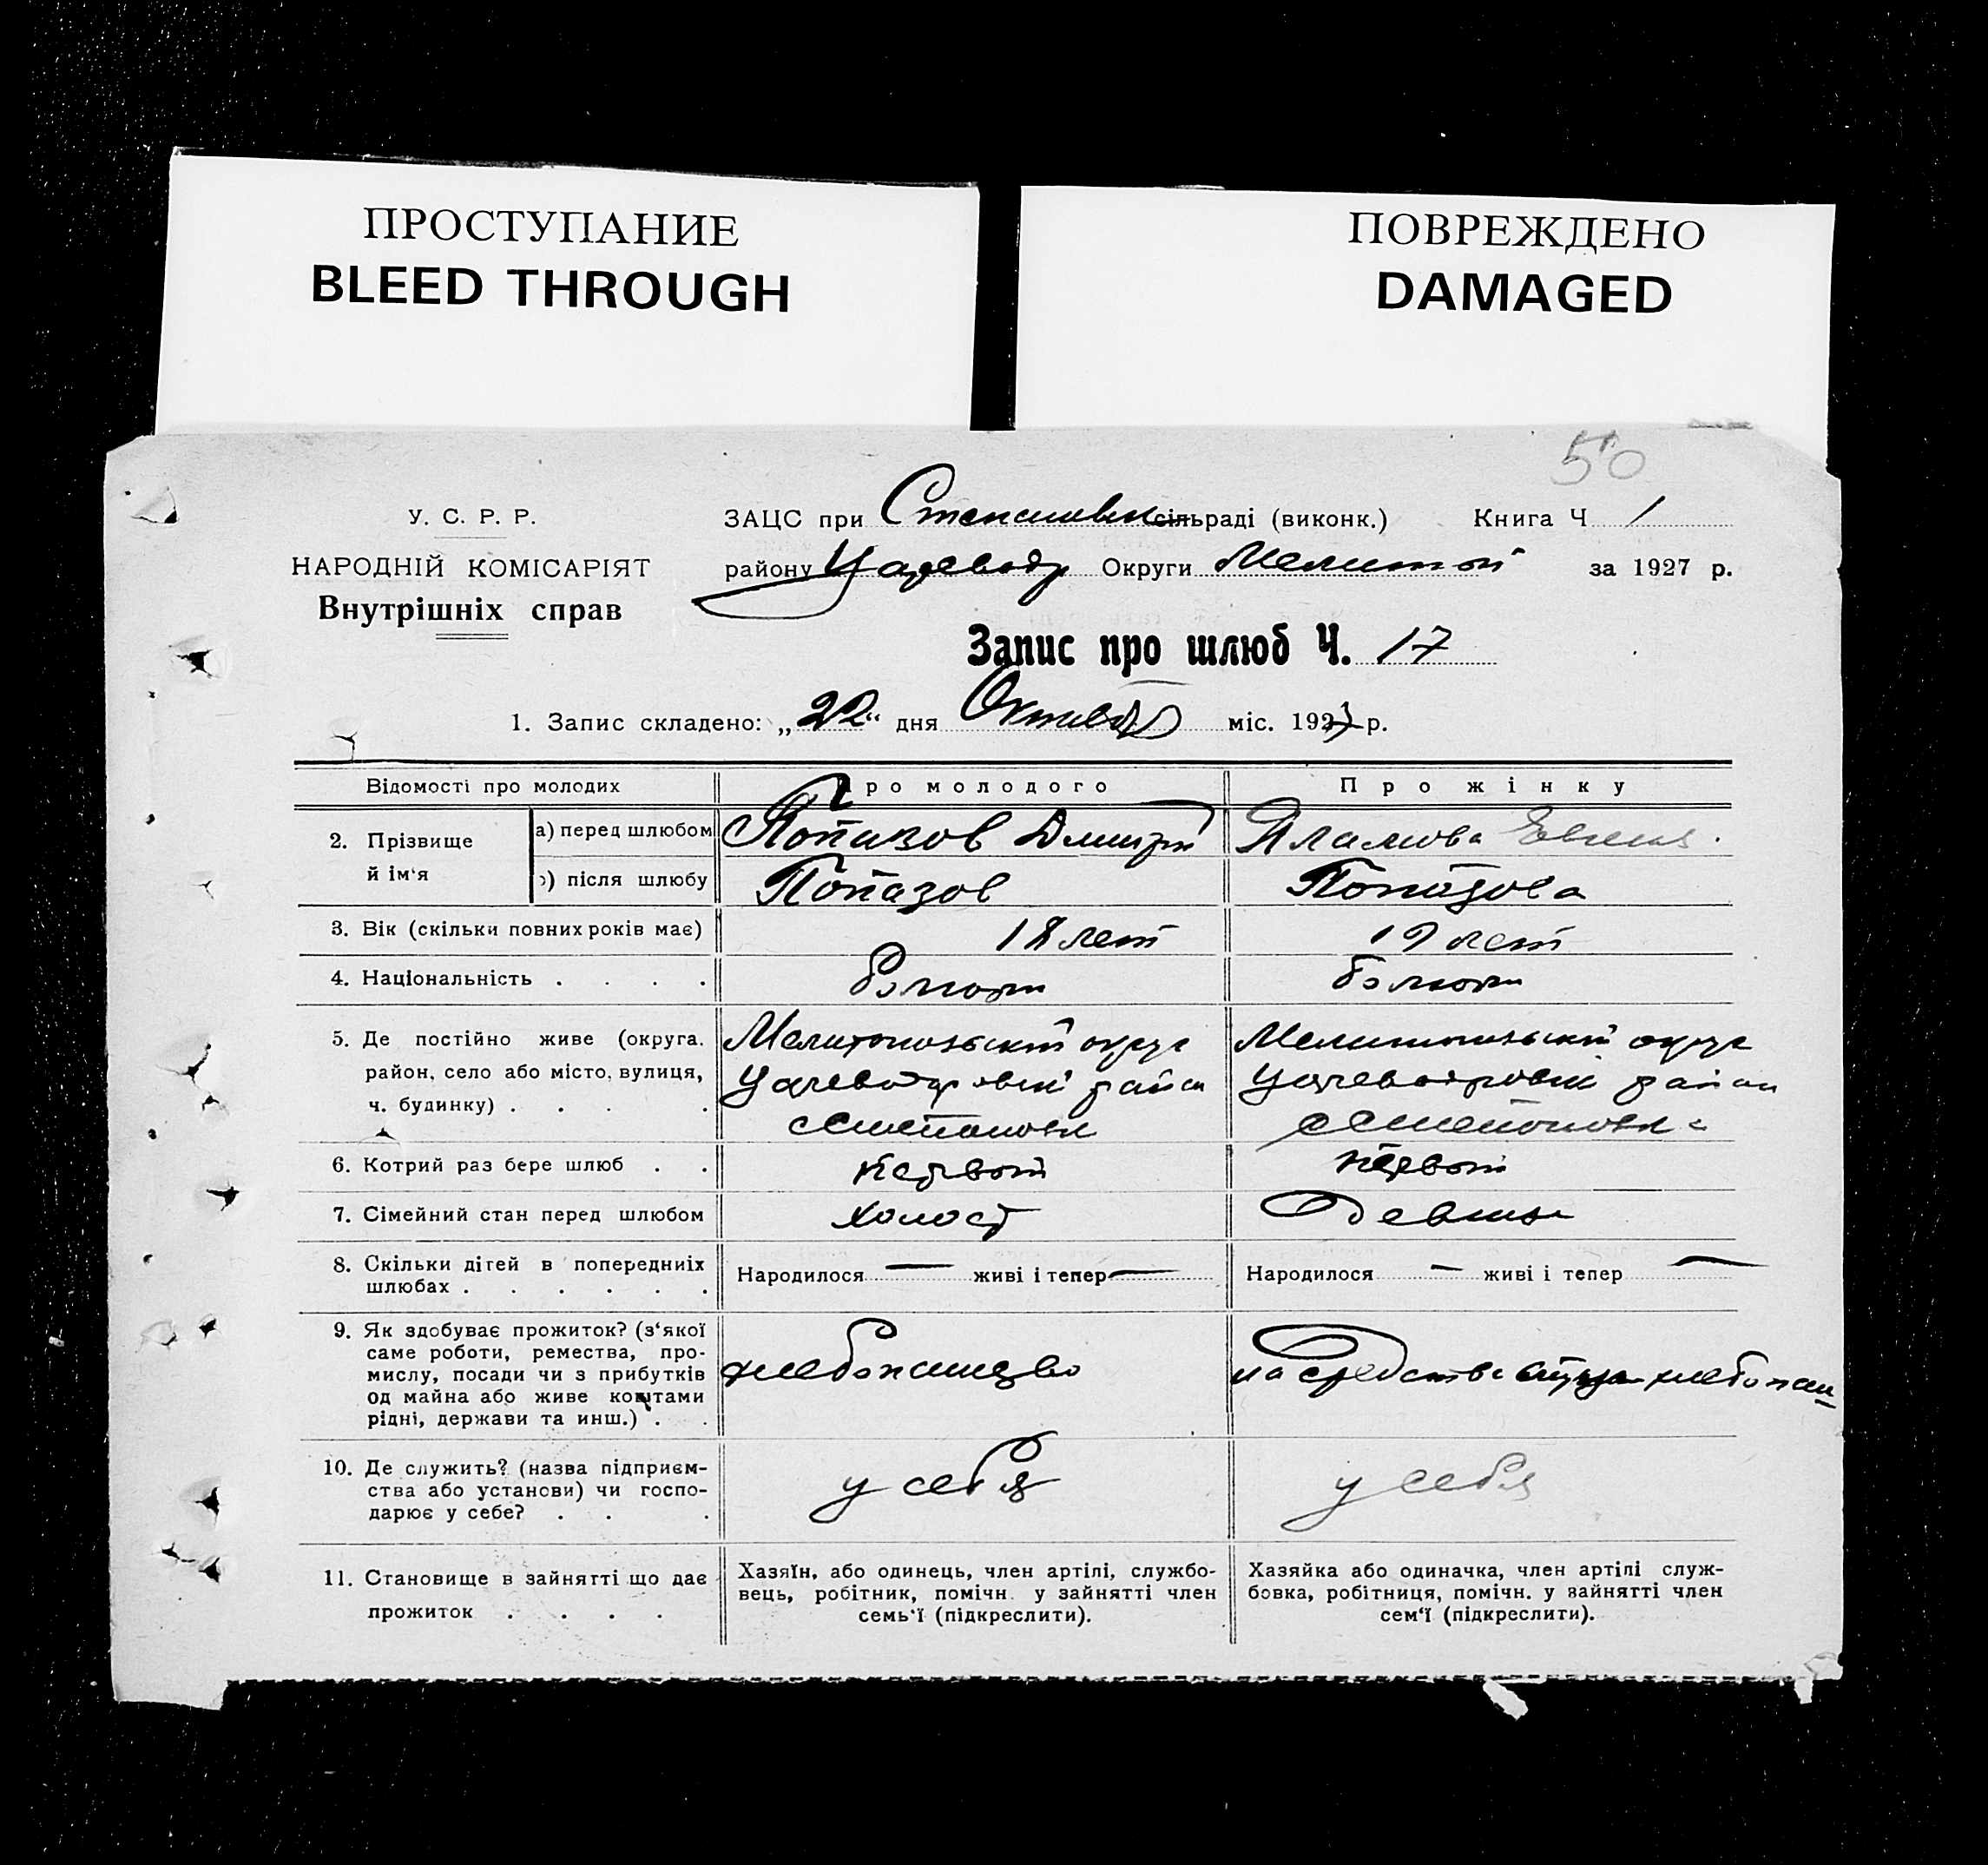 ПРОСТУПАНИЕ
BLEED THROUGH
ПОВРЕЖДЕНО
DAMAGED
50
У. С. Р. Р.
НАРОДНІЙ КОМІСАРІЯТ
Внутрішніх справ
ЗАЦС при Степановк сільраді (виконк.) Книга Ч 1
району Цареводр Округи Мелитоп за 1927 р.
Запис про шлюб Ч. 17
1. Запис складено: „22“ дня Октября міс. 1927 р.
Відомості про молодих
Про молодого
Про жінку
2. Прізвище й ім‘я
а) перед шлюбом
Попазов Дмитрий
Евгения
б) після шлюбу
Попазов
Попазова
3. Вік (скільки повних років має)
18 лет
19 лет
4. Національність . . . .
болгары
болгары
5. Де постійно живе (округа,
район, село або місто, вулиця,
ч. будинку) . . . .
Мелитопольский округ
Цареводаровск район
с Степановка
Мелитопольский округ
Цареводаровск район
с Степановка
6. Котрий раз бере шлюб . .
первый
первый
7. Сімейний стан перед шлюбом
холост
девица
8. Скільки дітей в попередниіх
шлюбах . . . . . .
Народилося — живі і тепер —
Народилося — живі і тепер —
9. Як здобуває прожиток? (з‘якої
саме роботи, ремества, про-
мислу, посади чи з прибутків
од майна або живе коштами
рідні, держави та инш.) . .
хлебопашество
на средства отца хлебопаш
10. Де служить? (назва підприєм-
ства або установи) чи госпо-
дарює у себе? . . .
у себя
у себя
11. Становище в зайнятті що дає
прожиток . . . .
Хазяїн, або одинець, член артілі, службо-
вець, робітник, помічн. у зайнятті член
семь‘ї (підкреслити).
Хазяйка або одиначка, член артілі служ-
бовка, робітниця, помічн. у зайнятті член
сем‘ї (підкреслити).